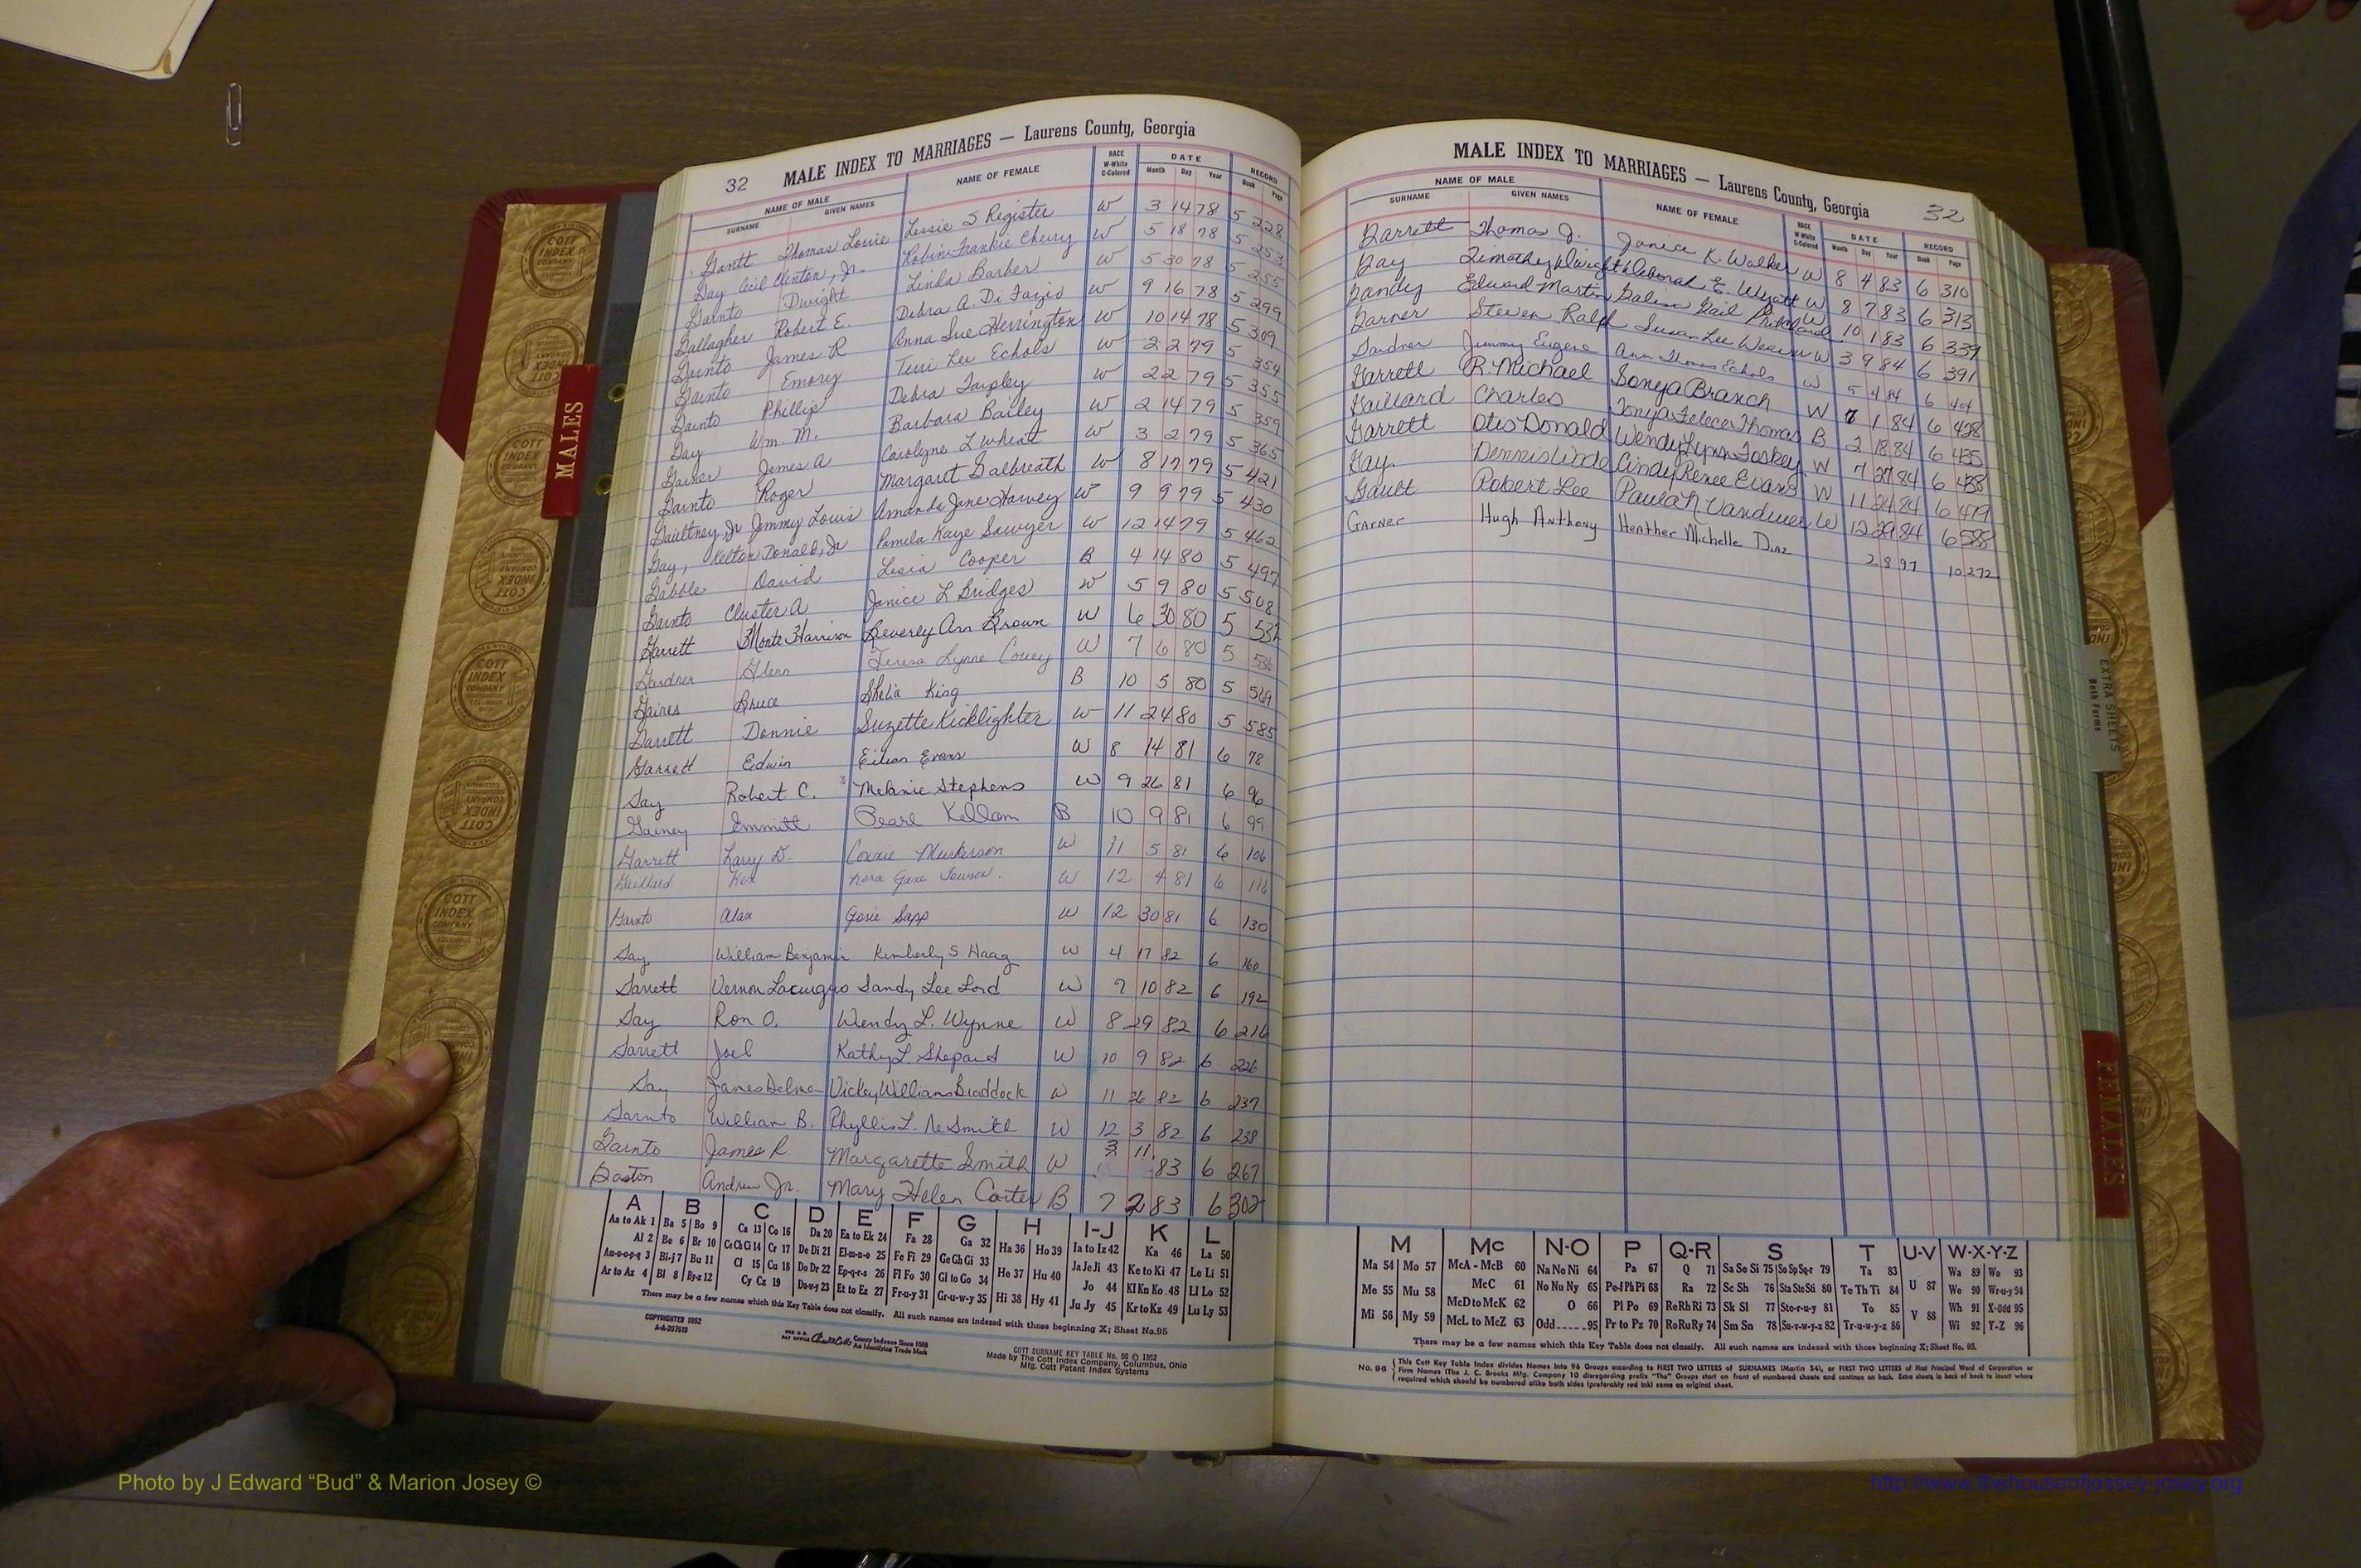 32 MALE INDEX TO MARRIAGES — Laurens County, Georgia
NAME OF MALE NAME OF FEMALE RACE W-White C-Colored DATE RECORD
SURNAME GIVEN NAMES Month Day Year Book Page
Gantt Thomas Louie Lessie S Register W 3 14 78 5 228
Gay Cecil Clinton, Jr. Robin Frankie Cherry W 5 18 78 5 253
Garnto Dwight Linda Barber W 5 30 78 5 255
Gallagher Robert E. Debra A. Di Fazio W 9 16 78 5 299
Garnto James R Anna Sue Herrington W 10 14 78 5 309
Garnto Emory Terri Lee Echols W 2 2 79 5 354
Garnto Phillip Debra Tarpley W 2 2 79 5 355
Gay Wm. M. Barbara Bailey W 2 14 79 5 359
Garner James A Carolyne L Wheat W 3 2 79 5 365
Garnto Roger Margaret Galbreath W 8 17 79 5 421
Gaultney, Jr Jimmy Louis Amanda Jane Harvey W 9 9 79 5 430
Gay, Kelton Donald, Jr Pamela Kaye Sawyer W 12 14 79 5 462
Gabble David Lisia Cooper B 4 14 80 5 497
Garnto Cluster A Janice L Bridges W 5 9 80 5 508
Garrett Monte Harrison Beverly Ann Brown W 6 30 80 5
Gardner Glenn Teresa Lynne Covey W 7 6 80 5
Gaines Bruce Shelia King B 10 5 80 5 569
Garrett Donnie Suzette Kicklighter W 11 24 80 5 585
Garrett Edwin Eilean Evans W 8 14 81 6 78
Gay Robert C. Melanie Stephens W 9 26 81 6 96
Gainey Emmitt Pearl Kellam B 10 9 81 6 99
Garrett Larry D. Connie W 11 5 81 6 106
Gaillard Ken W 12 4 81 6 116
Garnto Alan Gosie Sapp W 12 30 81 6 130
Gay William Benjamin Kimberly S. Haag W 4 17 82 6 160
Garrett Vernon Sandy Lee Lord W 7 10 82 6 192
Gay Ron O. Wendy L. Wynne W 8 29 82 6 216
Garrett Joel Kathy L. Shepard W 10 9 82 6 226
Gay James Delmar Vickey Williams Braddock W 11 26 82 6 237
Garnto William B. Phyllis L. DeSmith W 12 3 82 6 238
Garnto James R. Margarette Smith W 3 11 83 6 267
Gaston Andrew Jr. Mary Helen Carter B 7 2 83 6 302
A B C D E F G H I-J K L
Aa to Ak 1 Ba 5 Bo 9 Ca 13 Co 16 Da 20 Ea to Ek 24 Fa 28 Ga 32 Ha 36 Ho 39 Ia to Iz 42 Ka 46 La 50
Al 2 Be 6 Br 10 Ce Ch Ci 14 Cr 17 De Di 21 El-m-n-o 25 Fe Fi 29 Ge Gh Gi 33 He 37 Hu 40 Ja Je Ji 43 Ke to Ki 47 Le Li 51
Am-n-o-p-q 3 Bi-j 7 Bu 11 Cl 15 Cu 18 Do Dr 22 Ep-q-r-s 26 Fl Fo 30 Gl to Go 34 Hi 38 Hy 41 Jo 44 Kl Kn Ko 48 Ll Lo 52
Ar to Az 4 Bl 8 By-z 12 Cy Cz 19 Du-w-y 23 Et to Ez 27 Fr-u-y 31 Gr-u-w-y 35 Ju Jy 45 Kr to Kz 49 Lu Ly 53
There may be a few names which this Key Table does not classify. All such names are indexed with those beginning X; Sheet No.95
COPYRIGHTED 1952
A-A-207619
County Indexes Since 1888
An Identifying Trade Mark
COTT SURNAME KEY TABLE No. 96 © 1952
Made by The Cott Index Company, Columbus, Ohio
Mfg. Cott Patent Index Systems
MALE INDEX TO MARRIAGES — Laurens County, Georgia 32
NAME OF MALE NAME OF FEMALE RACE W-White C-Colored DATE RECORD
SURNAME GIVEN NAMES Month Day Year Book Page
Garrett Thomas J. Janice K. Walker W 8 4 83 6 310
Gay Timothy Dwight Deborah E. Wyatt W 8 7 83 6 313
Gandy Edward Martin Galena Gail Pritchard W 10 1 83 6 339
Garner Steven Ralph Susan Lee Weaver W 3 9 84 6 391
Gardner Jimmy Eugene Ann Thomas Echols W 5 4 84 6 404
Garrett R. Michael Sonya Branch W 7 1 84 6 428
Gaillard Charles Tonya Felece Thomas B 2 18 84 6 435
Garrett Otis Donald Wendy Lynn Foskey W 7 27 84 6 438
Gay Dennis Cindy Renee Evans W 11 24 84 6 479
Gault Robert Lee Paula N Vandiver W 12 29 84 6 588
Garner Hugh Anthony Heather Michelle Diaz 2 8 97 10 272
M Mc N-O P Q-R S T U-V W-X-Y-Z
Ma 54 Mo 57 McA - McB 60 Na Ne Ni 64 Pa 67 Q 71 Sa Se Si 75 So Sp Sq-r 79 Ta 83 Wa 89 Wo 93
Me 55 Mu 58 McC 61 No Nu Ny 65 Pe-f Ph Pi 68 Ra 72 Sc Sh 76 Sta Ste Sti 80 Te Th Ti 84 U 87 We 90 Wr-u-y 94
Mi 56 My 59 McD to McK 62 O 66 Pl Po 69 Re Rh Ri 73 Sk Sl 77 Sto-r-u-y 81 To 85 V 88 Wh 91 X-Odd 95
McL to McZ 63 Odd 95 Pr to Pz 70 Ro Ru Ry 74 Sm Sn 78 Su-v-w-y-z 82 Tr-u-w-y-z 86 Wi 92 Y-Z 96
There may be a few names which this Key Table does not classify. All such names are indexed with those beginning X; Sheet No. 95.
No. 96 This Cott Key Table Index divides Names into 96 Groups according to FIRST TWO LETTERS of SURNAMES (Martin 54), or FIRST TWO LETTERS of First Principal Word of Corporation or
Firm Names (The J. C. Brooks Mfg. Company 10 disregarding prefix "The" Groups start on front of numbered sheets and continue on back. Extra sheets in back of book to insert where
required which should be numbered alike both sides (preferably red ink) same as original sheet.
MALES
FEMALES
EXTRA SHEETS
Both Forms
COTT INDEX COMPANY COLUMBUS
Photo by J Edward “Bud” & Marion Josey ©
http://www.thehouseofjossey-josey.org